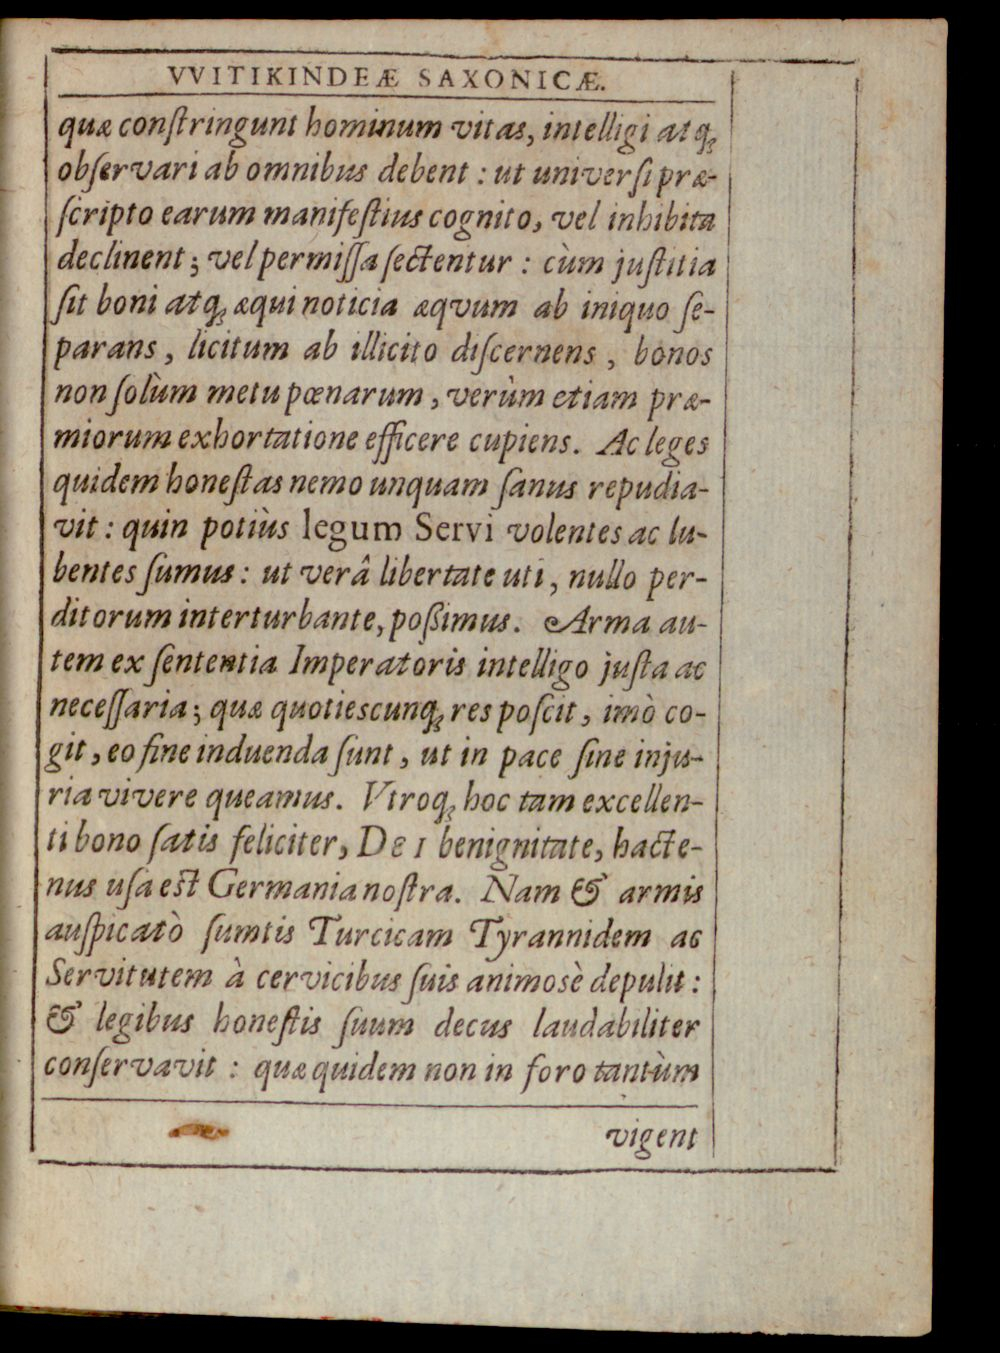 VVITIKINDEÆ SAXONICÆ.
quæ conſtringunt hominum vitas, intelligi atq́;
obſervari ab omnibus debent : ut univerſi præ-
ſcripto earum manifeſtius cognito, vel inhibita
declinent ; vel permiſſa ſectentur : cùm juſtitia
ſit boni atq; æqui noticia æqvum ab iniquo ſe-
parans , licitum ab illicito diſcernens , bonos
non ſolùm metu pœnarum , verùm etiam præ-
miorum exhortatione efficere cupiens. Ac leges
quidem honeſtas nemo unquam ſanus repudia-
vit : quin potiùs legum Servi volentes ac lu-
bentes ſumus : ut verâ libertate uti , nullo per-
ditorum interturbante, poßimus. Arma au-
tem ex ſententia Imperatoris intelligo juſta ac
neceſſaria ; quæ quotiescunq; res poſcit , imò co-
git , eo fine induenda ſunt , ut in pace ſine inju-
ria vivere queamus. Vtroq; hoc tam excellen-
ti bono ſatis feliciter, DEI benignitate, hacte-
nus uſa eſt Germania noſtra. Nam & armis
auſpicatò ſumtis Turcicam Tyrannidem ac
Servitutem à cervicibus ſuis animosè depulit :
& legibus honeſtis ſuum decus laudabiliter
conſervavit : quæ quidem non in foro tantùm
vigent